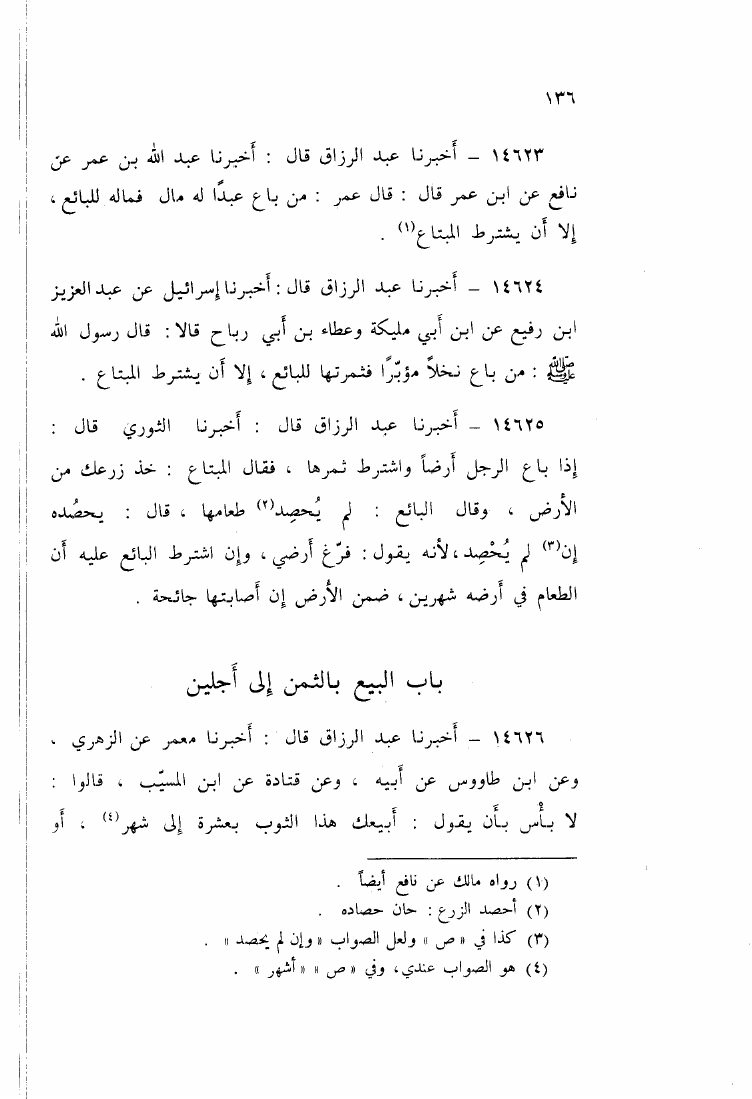 ١٣٦
١٤٦٢٣ – أَخبرنا عبد الرزاق قال : أَخبرنا عبد الله بن عمر عن
نافع عن ابن عمر قال : قال عمر : من باع عبدًا له مال فماله للبائع ،
إلا أن يشترط المبتاع(١) .
١٤٦٢٤ – أَخبرنا عبد الرزاق قال : أَخبرنا إسرائيل عن عبد العزيز
ابن رفيع عن ابن أَبي مليكة وعطاء بن أَبي رباح قالا : قال رسول الله
ﷺ : من باع نخلاً مؤبّرًا فثمرتها للبائع ، إلا أن يشترط المبتاع .
١٤٦٢٥ – أَخبرنا عبد الرزاق قال : أَخبرنا الثوري قال :
إذا باع الرجل أَرضاً واشترط ثمرها ، فقال المبتاع : خذ زرعك من
الأرض ، وقال البائع : لم يُحصِد(٢) طعامها ، قال : يحصُده
إن(٣) لم يُحْصِد ، لأنه يقول : فرّغ أرضي ، وإن اشترط البائع عليه أن
الطعام في أَرضه شهرين ، ضمن الأرض إن أصابتها جائحة .
باب البيع بالثمن إلى أَجلين
١٤٦٢٦ – أَخبرنا عبد الرزاق قال : أَخبرنا معمر عن الزهري ،
وعن ابن طاووس عن أَبيه ، وعن قتادة عن ابن المسيّب ، قالوا :
لا بأْس بأَن يقول : أَبيعك هذا الثوب بعشرة إلى شهر(٤) ، أو
(١) رواه مالك عن نافع أيضاً .
(٢) أحصد الزرع : حان حصاده .
(٣) كذا في « ص » ولعل الصواب « وإن لم يحصد » .
(٤) هو الصواب عندي ، وفي « ص » « أشهر » .